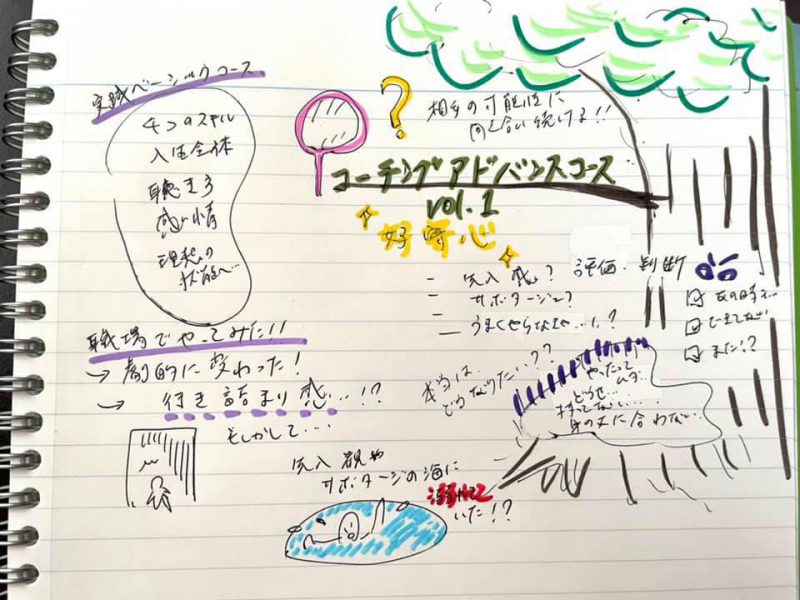 実践ベーシックコース
4つのスキル
人生全体
聴き方
感情
理想の
状態へ
職場でやってみた!!
→ 劇的に変わった!
→ 行き詰まり感…!?
もしかして…
?
相手の可能性に
向き合い続ける!!
コーチングアドバンスコース
vol.1
好奇心
サボタージュ?
うまくやらなきゃ…!?
評価・判断
また!?
本当は
どうなりたい??
やったって
ムダ…
どうせ…
持ってない…
身の丈に合わない…
サボタージュの海に
溺れて
いた!?